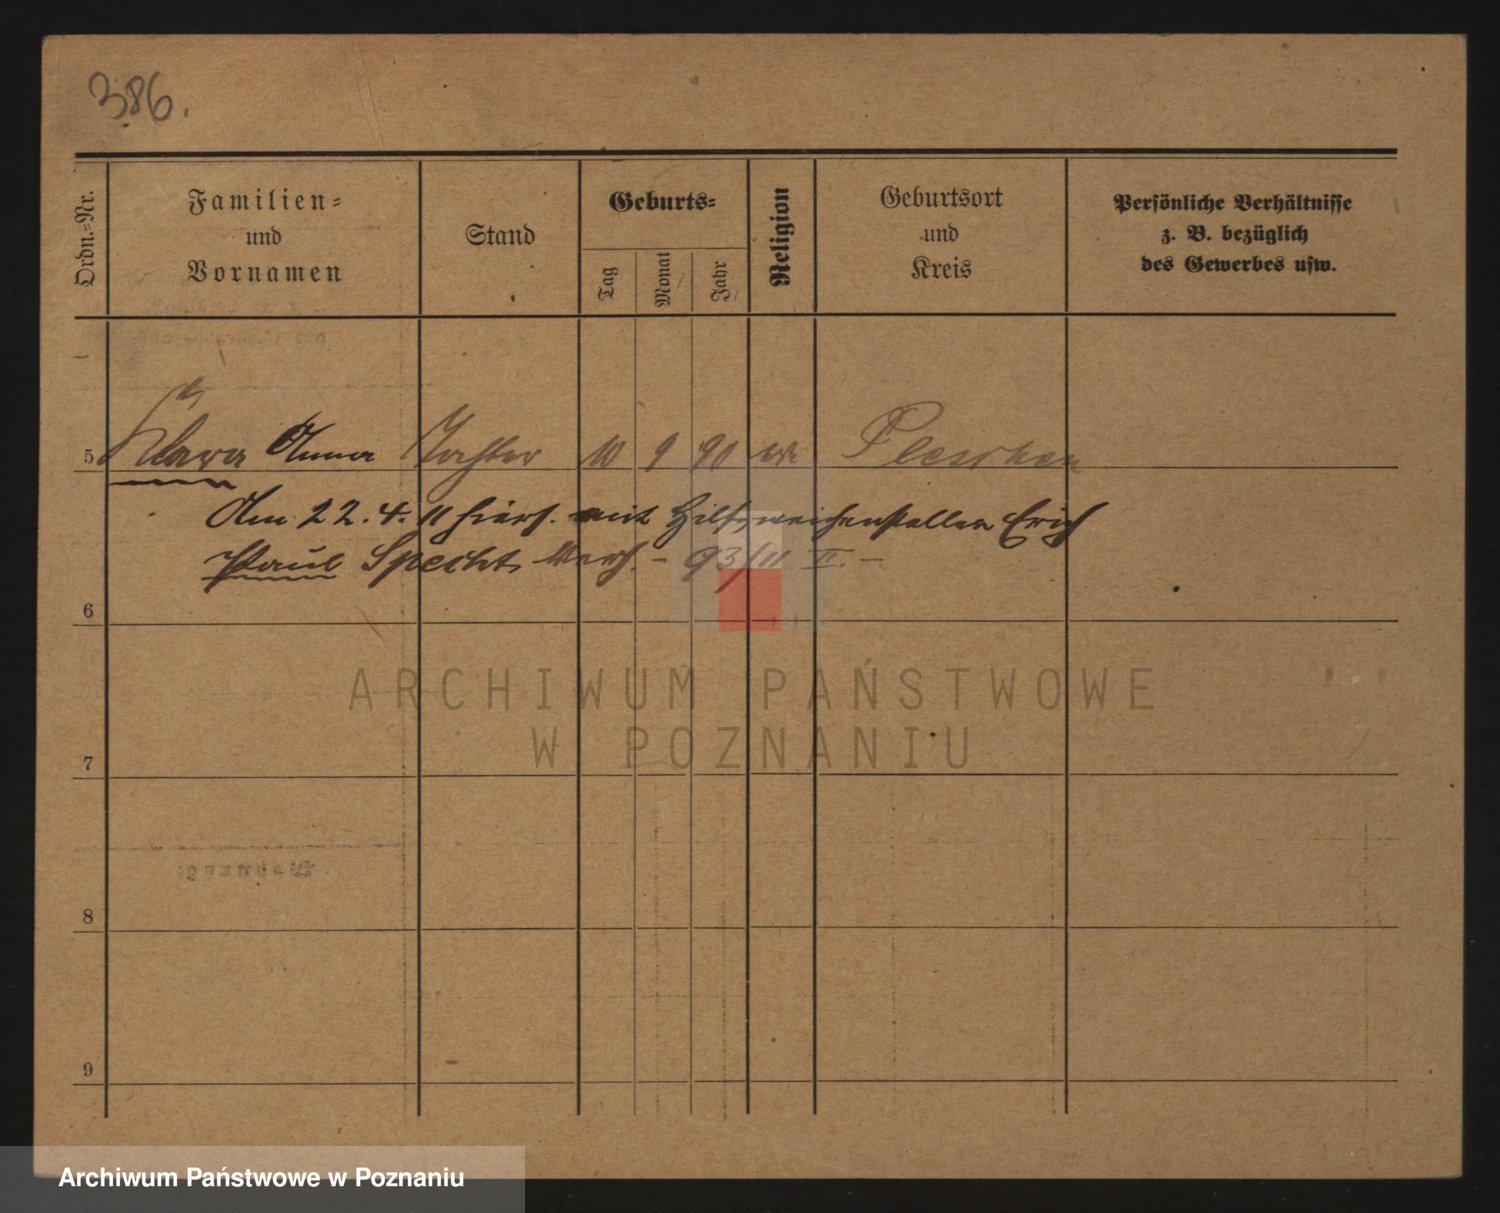 386.
Ordn.-Nr.
Familien-
und
Vornamen
Stand
Geburts-
Tag
Monat
Jahr
Religion
Geburtsort
und
Kreis
Persönliche Verhältnisse
z. B. bezüglich
des Gewerbes usw.
5 Klara Anna Tochter 10 9 90 ev Pleschen
Am 22. 4. 11 hiers. mit Hilfsweichensteller Erich
Paul Specht verh. – 93/11 II. –
6
7
8
9
ARCHIWUM PAŃSTWOWE
W POZNANIU
Archiwum Państwowe w Poznaniu